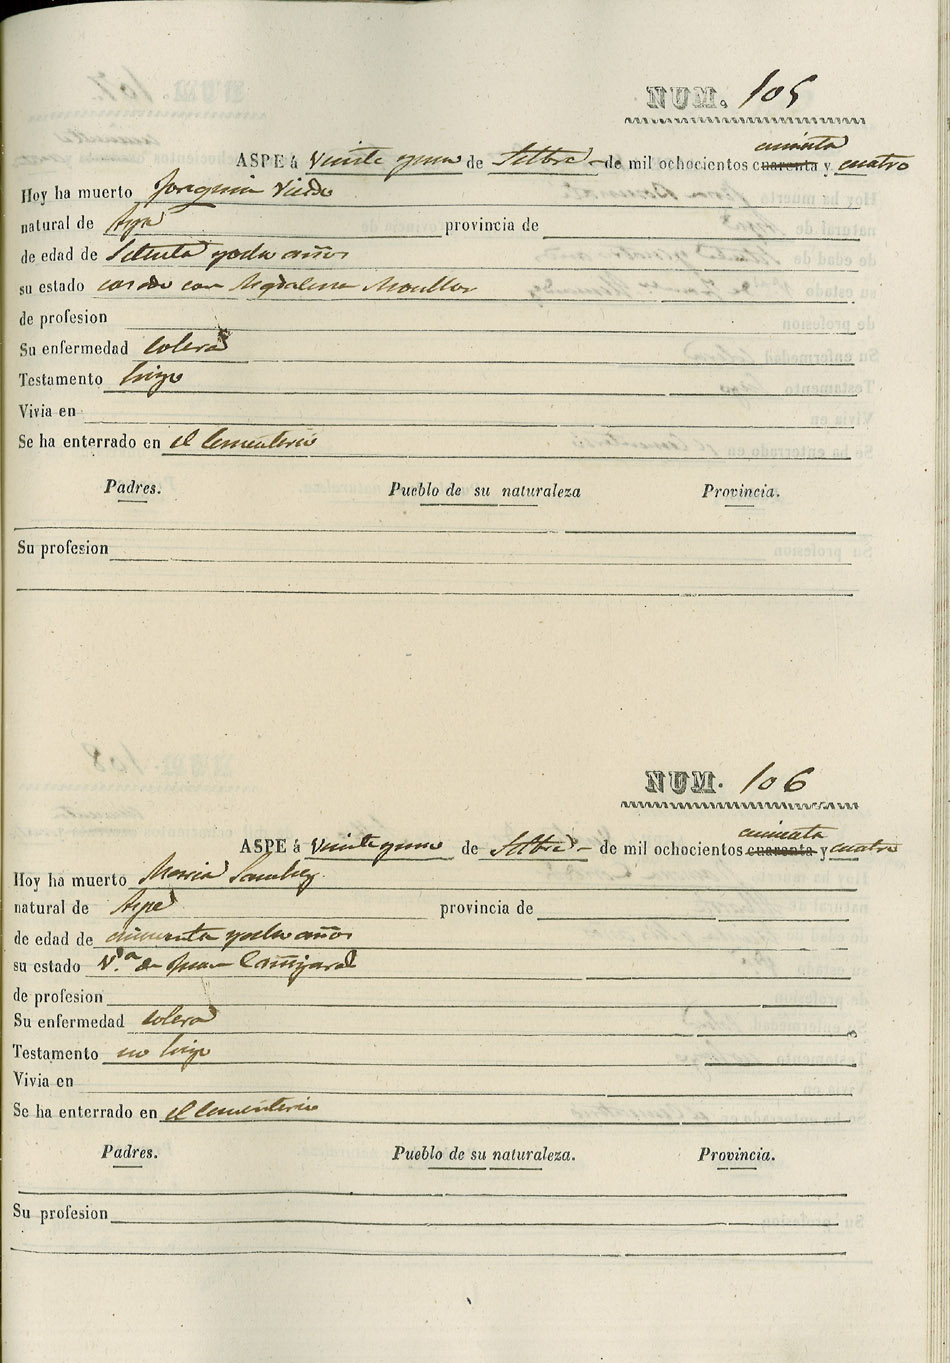 NUM. 105
cincuenta
ASPE á Veinte y uno de Setbre de mil ochocientos cuarenta y cuatro
Hoy ha muerto Joaquin
natural de Aspe provincia de
de edad de Setenta y ocho años
su estado casado con Magdalena Moullor
de profesion
Su enfermedad Colera
Testamento hizo
Vivia en
Se ha enterrado en el Cementerio
Padres. Pueblo de su naturaleza Provincia.
Su profesion
NUM. 106
cincuenta
ASPE á Veinte y uno de Setbre de mil ochocientos cuarenta y cuatro
Hoy ha muerto Maria Sanchez
natural de Aspe provincia de
de edad de cincuenta y ocho años
su estado V.ª de Juan Cañizares
de profesion
Su enfermedad colera
Testamento no hizo
Vivia en
Se ha enterrado en el Cementerio
Padres. Pueblo de su naturaleza. Provincia.
Su profesion